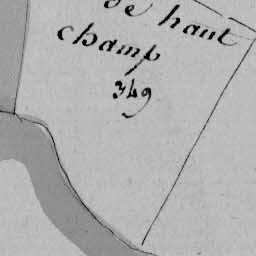 de haut
champ
349